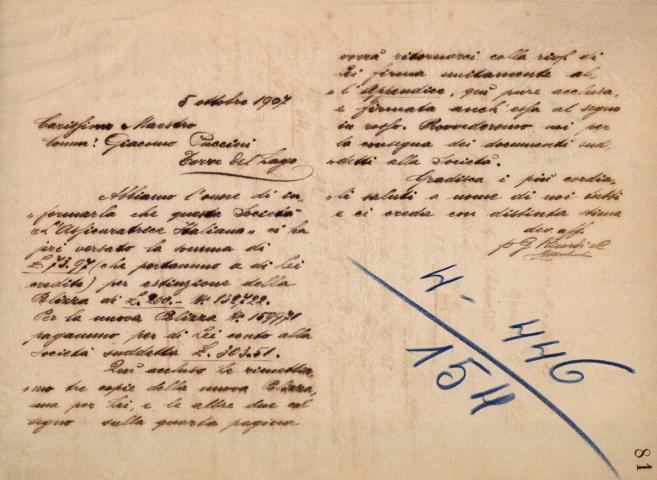 5 ottobre 1907
Carissimo Maestro
Comm: Giacomo Puccini
Torre del Lago
Abbiamo l'onore di in=
=formarla che questa Società
"L'Assicuratrice Italiana" ci ha
jeri versato la somma di
£.73.97 (che portammo a di Lei
credito) per estinzione della
Polizza di £.200.- No. 132722.
Per la nuova Polizza No.
pagammo per di Lei conto alla
Società suddetta £. 303.51.
Qui accluso Le rimettia=
=mo tre copie della nuova Polizza,
una per Lei, e le altre due col
segno sulla quarta pagina
vorrà ritornarci colla di
Lei firma unitamente al=
=l'Appendice, qui pure acclusa,
e firmata anch'essa al segno
in rosso. Provvederemo noi per
la consegna dei documenti sud=
=detti alla Società.
Gradisca i più cordia=
=li saluti a nome di noi tutti
e ci creda con distinta stima
dev. aff.
p G. Ricordi & C.
4 - 446
154
81